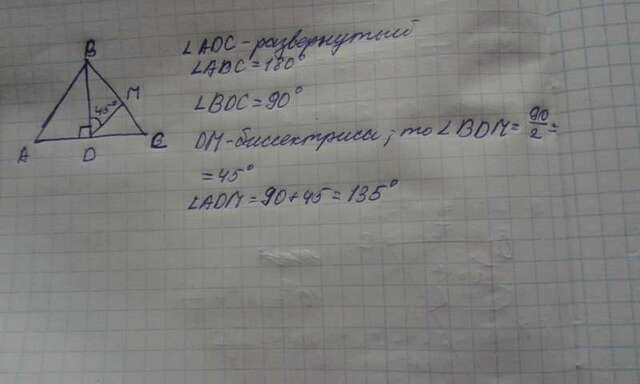 B
45°
M
A
D
C
∠ADC - развернутый
∠ABC = 180°
∠BDC = 90°
DM - биссектриса, то ∠BDM = 90/2 =
= 45°
∠ADM = 90 + 45 = 135°